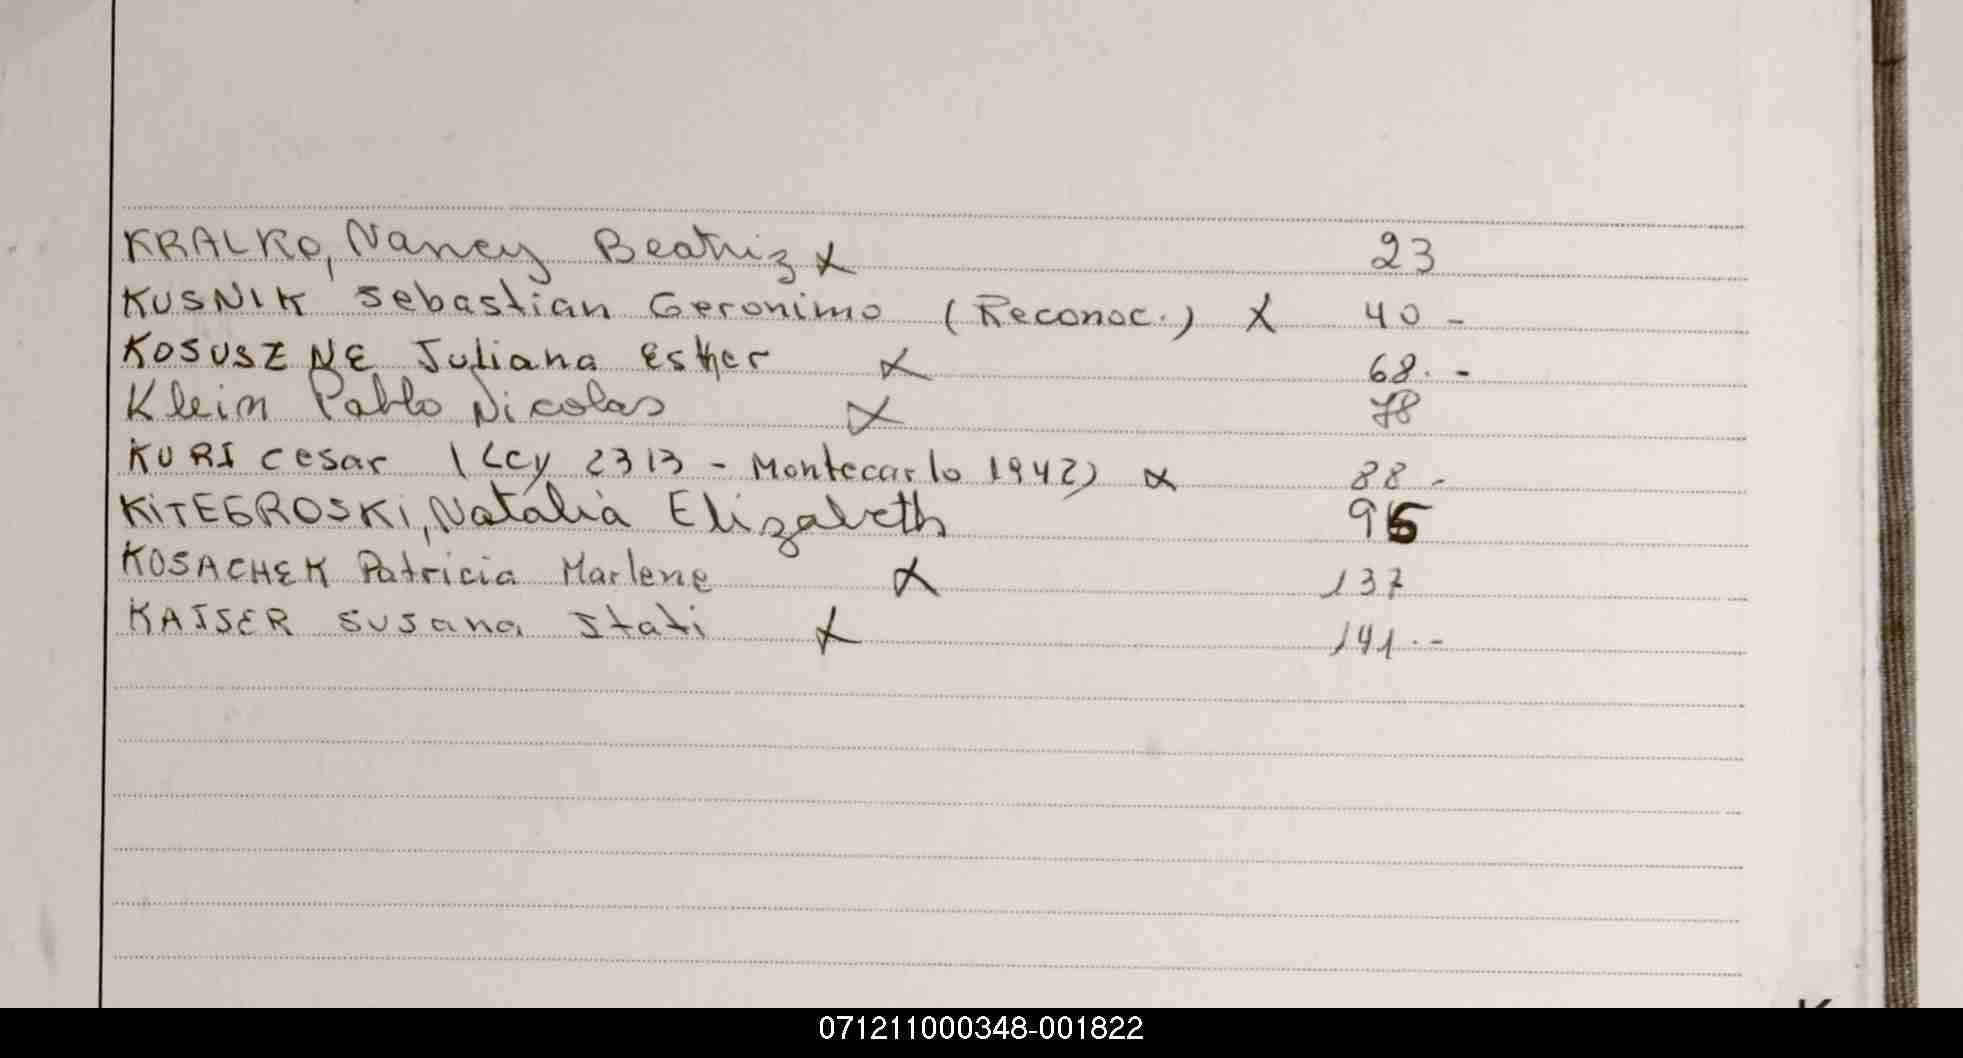 KRALKO, Nancy Beatriz x 23
KUSNIK Sebastian Geronimo (Reconoc.) X 40 -
KOSUSZNE Juliana Esther x 68. -
Klein Pablo Nicolas x 78
KURI Cesar (Ley 2313 - Montecarlo 1942) x 88 -
KiTEGROSKi, Natalia Elizabeth 96
KOSACHEK Patricia Marlene x 137
KAISER Susana Itati x 141.-
K
071211000348-001822